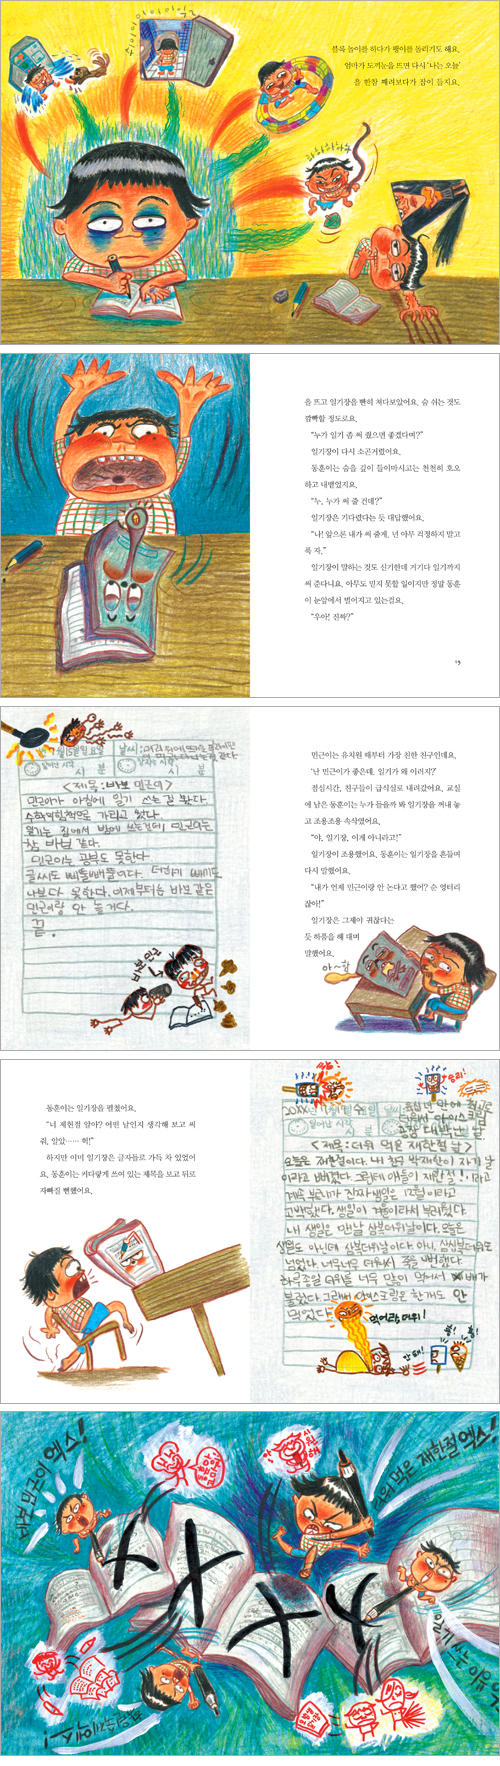 블록 놀이를 하다가 팽이를 돌리기도 해요.
엄마가 도끼눈을 뜨면 다시 ‘나는 오늘’
을 한참 째려보다가 잠이 들지요.
을 뜨고 일기장을 빤히 쳐다보았어요. 숨 쉬는 것도
깜빡할 정도로요.
“누가 일기 좀 써 줬으면 좋겠다며?”
일기장이 다시 소곤거렸어요.
동훈이는 숨을 깊이 들이마시고는 천천히 호오
하고 내뱉었지요.
“누, 누가 써 줄 건데?”
일기장은 기다렸다는 듯 대답했어요.
“나! 앞으론 내가 써 줄게. 넌 아무 걱정하지 말고
푹 자.”
일기장이 말하는 것도 신기한데 거기다 일기까지
써 준다니요. 아무도 믿지 못할 일이지만 정말 동훈
이 눈앞에서 벌어지고 있는걸요.
“우아! 진짜?”
<제목 : 바보 민근이>
민근이가 아침에 일기 쓰는 걸 봤다.
수학익힘책으로 가리고 썼다.
일기는 집에서 밤에 쓰는건데 민근이는
참 바보 같다.
민근이는 공부도 못한다.
글씨도 삐뚤빼뚤이다. 더하기 빼기도
나보다 못한다. 이제부터는 바보 같은
민근이랑 안 놀거다.
끝.
바보 민근
민근이는 유치원 때부터 가장 친한 친구인데요.
“난 민근이가 좋은데, 일기가 왜 이러지?”
점심시간, 친구들이 급식실로 내려갔어요. 교실
에 남은 동훈이는 누가 들을까 봐 일기장을 꺼내 놓
고 조용조용 속삭였어요.
“야, 일기장, 이게 아니라고!”
일기장이 조용했어요. 동훈이는 일기장을 흔들며
다시 말했어요.
“내가 언제 민근이랑 안 논다고 했어? 순 엉터리
잖아!”
일기장은 그제야 귀찮다는
듯 하품을 해 대며
말했어요.
아~함
동훈이는 일기장을 펼쳤어요.
“너 제헌절 알아? 어떤 날인지 생각해 보고 써
줘, 알았…… 헉!”
하지만 이미 일기장은 글자들로 가득 차 있었어
요. 동훈이는 커다랗게 쓰여 있는 제목을 보고 뒤로
자빠질 뻔했어요.
승리!
<제목 : 더위 먹은 재한절 날>
오늘은 재한절이다. 내 친구 박재한이 자기 날
이라고 뻐겼다. 그런데 애들이 재한절! 이라고
계속 놀리니까 진짜 생일은 12월이라고
고백했다. 생일이 겨울이라서 부러웠다.
내 생일은 만날 삼복더위날이다. 오늘은
생일도 아닌데 삼복더위날이다. 아니, 삼삼복더위도
넘었다. 너무너무 더워서 죽을 뻔했다.
하루종일 더위를 너무 많이 먹어서 배가
불렀다. 그런데 아이스크림은 한개도 안
먹었다.
먹어라, 더위!
안돼!
바보 민근이 엑스!
더위 먹은 재한절 엑스!